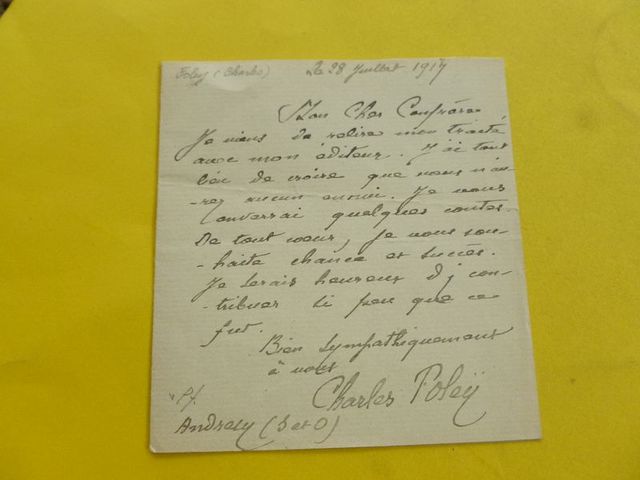 Foleÿ (Charles)
Le 28 Juillet 1917
Mon Cher Confrère,
Je viens de relire mon traité
avec mon éditeur. J'ai tout
lieu de croire que vous n'au-
-rez aucun ennui. Je vous
enverrai quelques contes.
De tout cœur, je vous sou-
-haite chance et succès.
Je serais heureux d'y con-
-tribuer si peu que ce
fut.
Bien sympathiquement
à vous
Charles Foleÿ
Andresy (S et O)